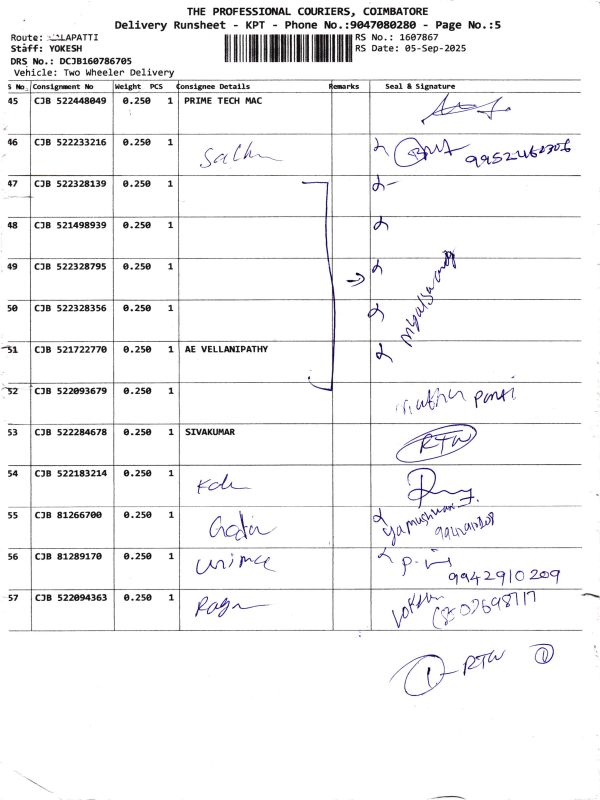 THE PROFESSIONAL COURIERS, COIMBATORE
Delivery Runsheet - KPT - Phone No.:9047080280 - Page No.:5
Route: LAPATTI
RS No.: 1607867
Staff: YOKESH
RS Date: 05-Sep-2025
DRS No.: DCJB160786705
Vehicle: Two Wheeler Delivery
S No. Consignment No Weight PCS Consignee Details Remarks Seal & Signature
45 CJB 522448049 0.250 1 PRIME TECH MAC
46 CJB 522233216 0.250 1
47 CJB 522328139 0.250 1
48 CJB 521498939 0.250 1
49 CJB 522328795 0.250 1
50 CJB 522328356 0.250 1
51 CJB 521722770 0.250 1 AE VELLANIPATHY
52 CJB 522093679 0.250 1
53 CJB 522284678 0.250 1 SIVAKUMAR RTW
54 CJB 522183214 0.250 1
55 CJB 81266700 0.250 1
56 CJB 81289170 0.250 1 9942910209
57 CJB 522094363 0.250 1
1 RTW 1